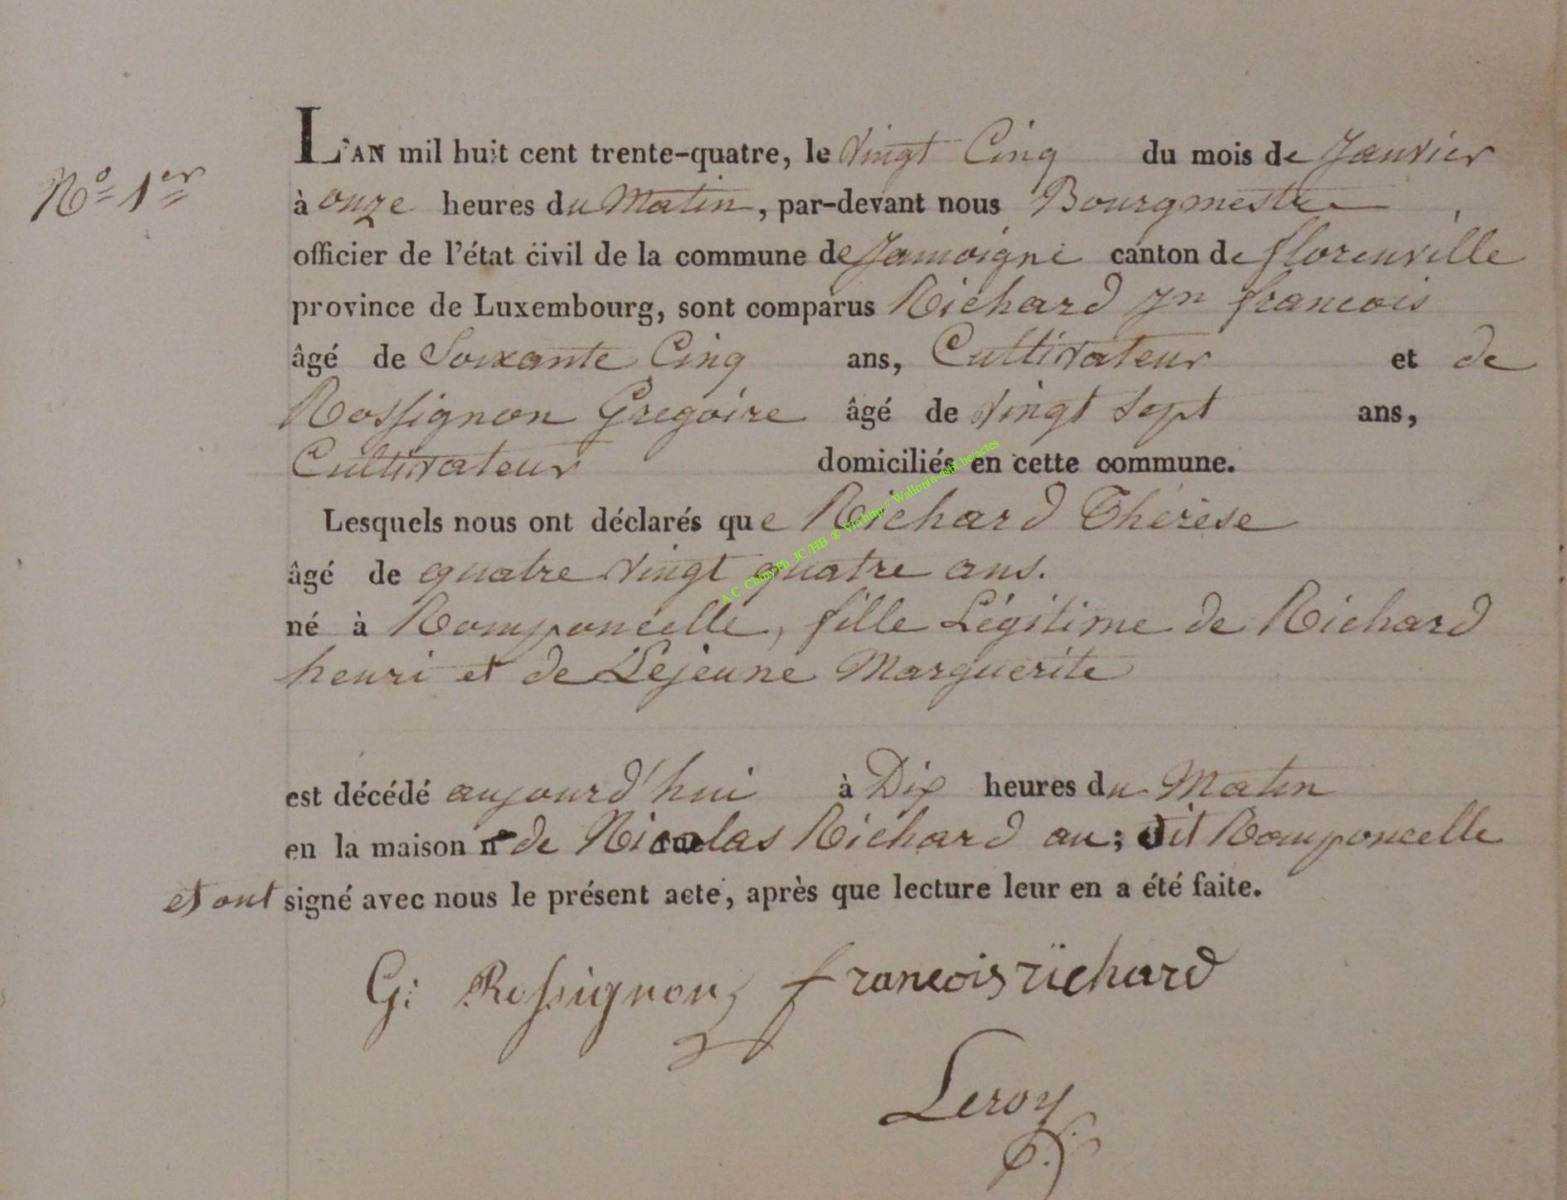 N° 1er
L'AN mil huit cent trente-quatre, le vingt Cinq du mois de Janvier
à onze heures du Matin, par-devant nous Bourgmestre
officier de l'état civil de la commune de Jamoigne canton de florenville
province de Luxembourg, sont comparus Richard Jn francois
âgé de Soixante Cinq ans, Cultivateur et de
Rossignon Gregoire âgé de vingt sept ans,
Cultivateur domiciliés en cette commune.
Lesquels nous ont déclarés que Richard Thérèse
âgé de quatre vingt quatre ans.
né à Romponcelle, fille Légitime de Richard
henri et de Lejeune Marguerite
est décédé aujourd'hui à Dix heures du Matin
en la maison n° de Nicolas Richard au; dit Romponcelle
et ont signé avec nous le présent acte, après que lecture leur en a été faite.
G: Rossignon francois richard
Leroy